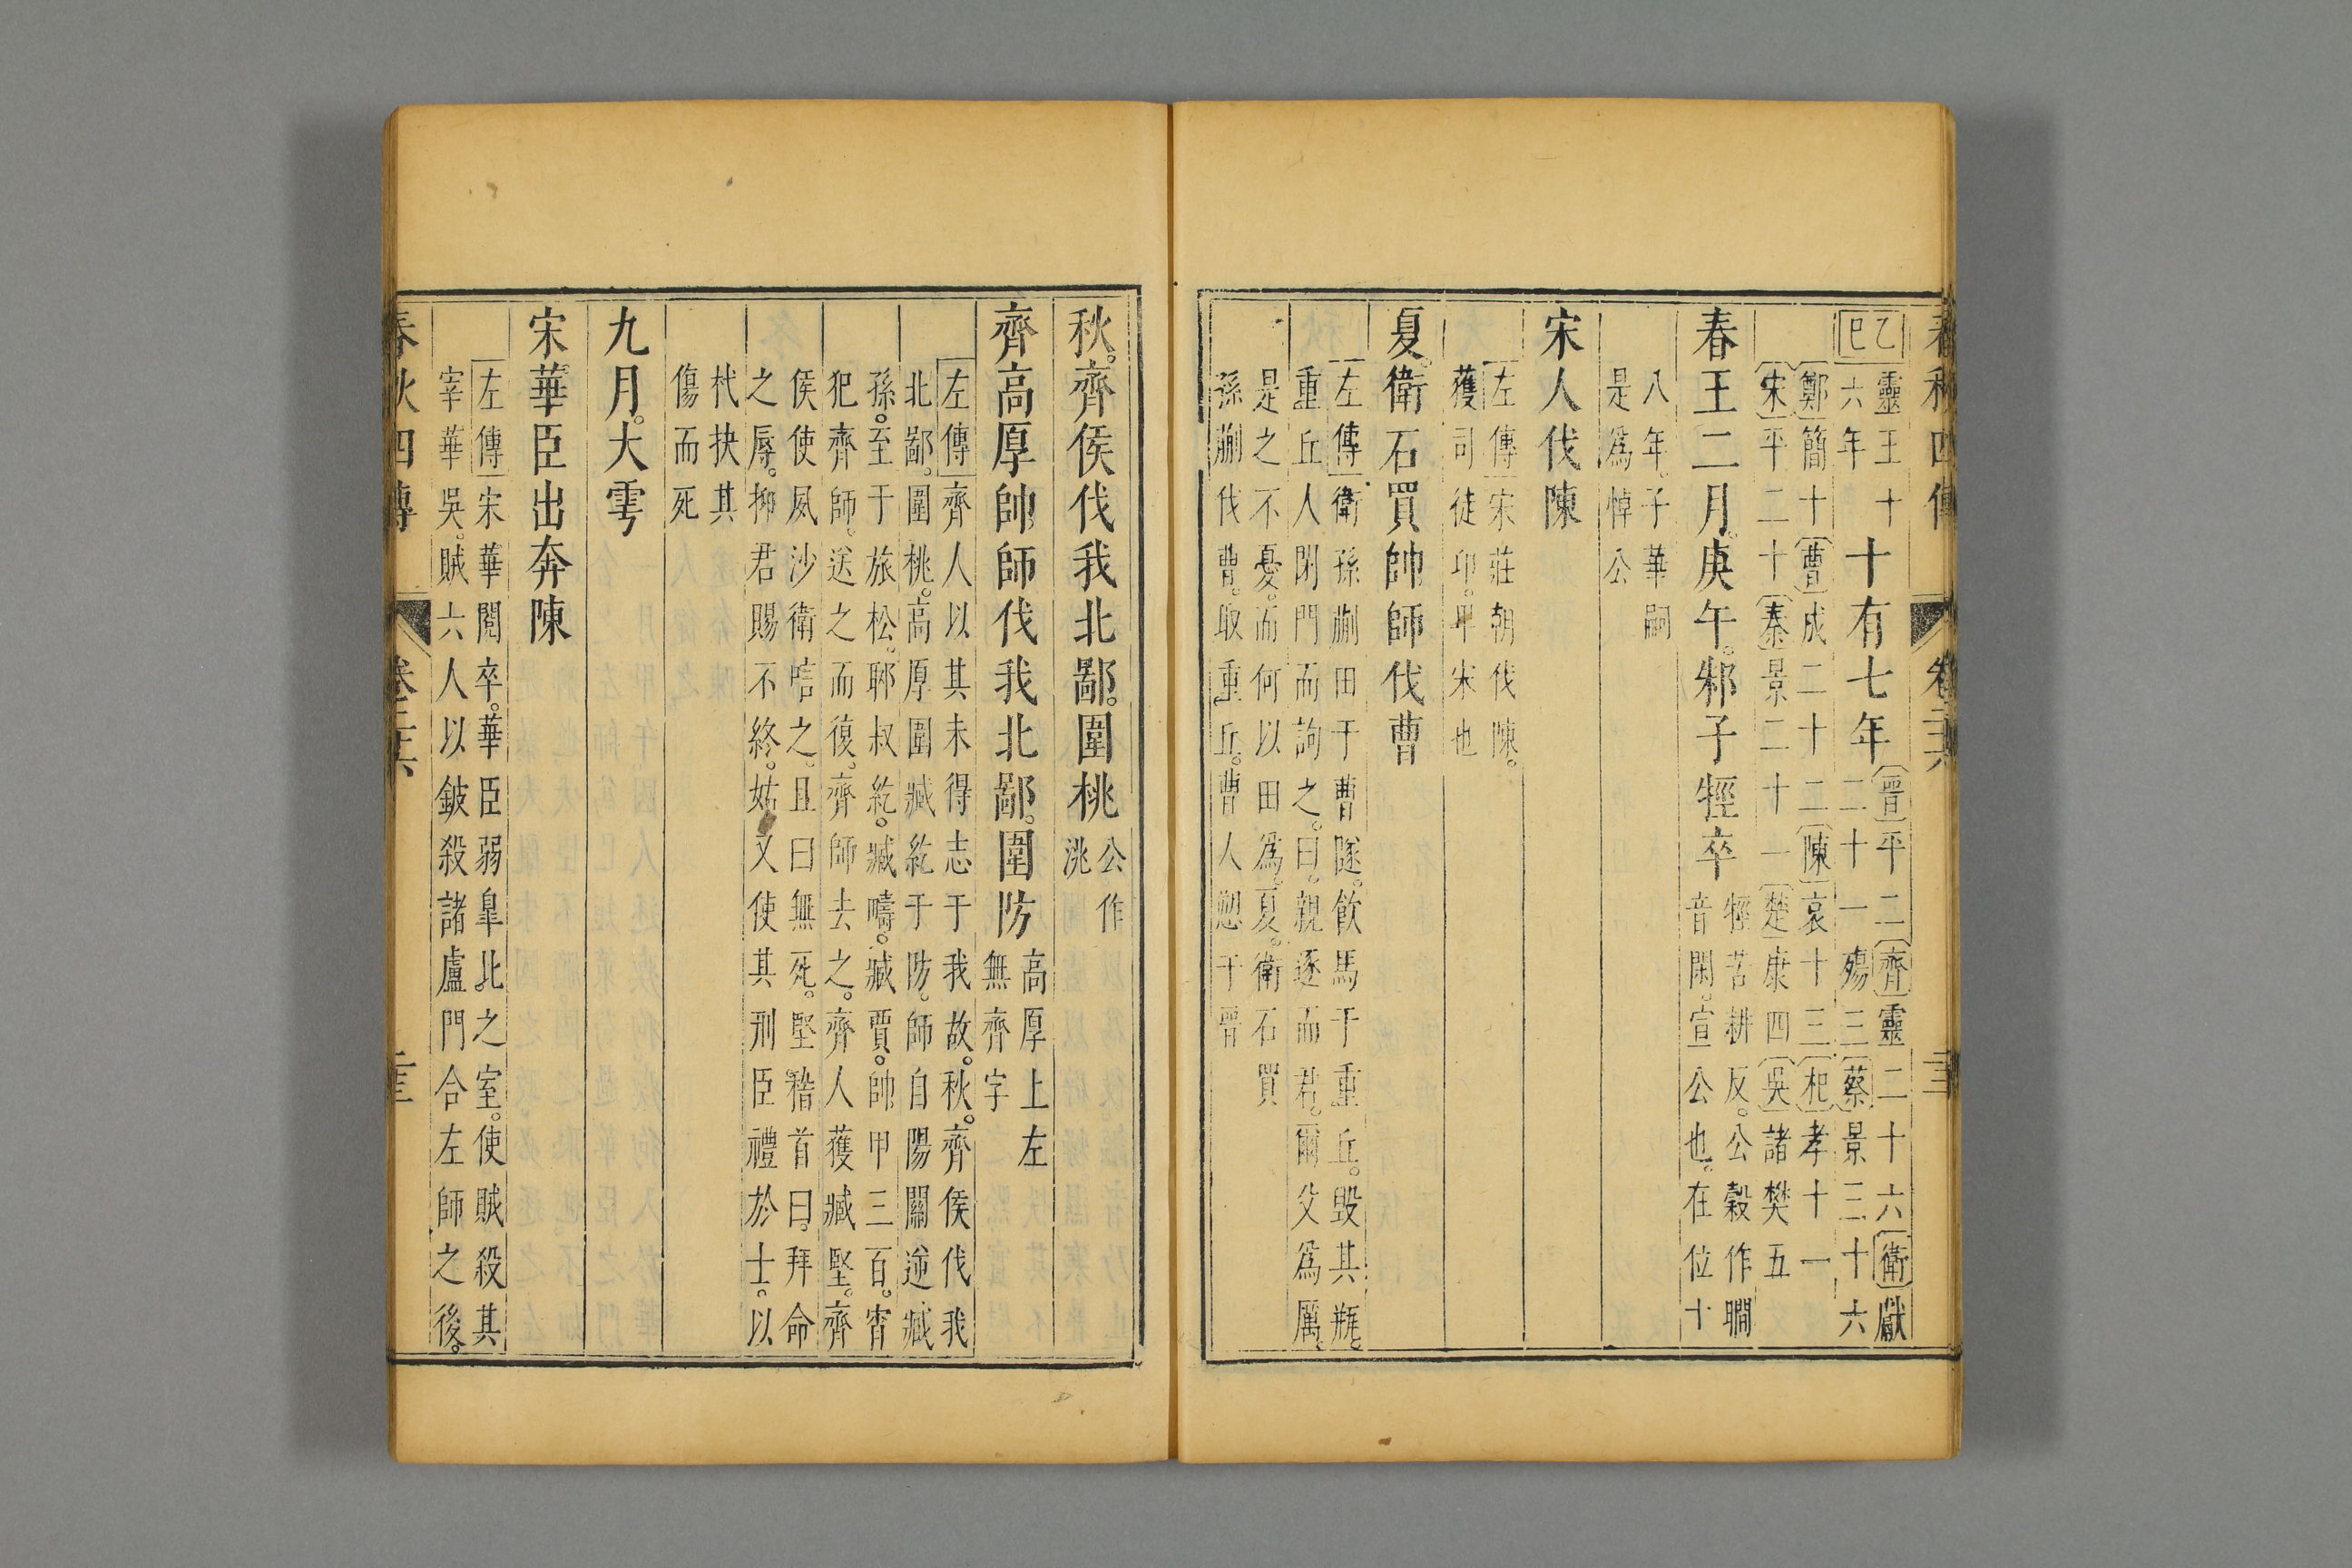 春秋四傳 卷二十六
乙巳
靈王十六年
十有七年
晉平二齊靈二十六衛獻
二十一殤三蔡景三十六
鄭簡十曹成二十二陳哀十三杞孝十一
宋平二十秦景二十一楚康四吳諸樊五
春王二月。庚午。邾子牼卒
牼苦耕反。公穀作瞷
音閑。宣公也。在位十
八年。子華嗣
是爲悼公
宋人伐陳
左傳宋莊朝伐陳。
獲司徒卬。卑宋也
夏。衛石買帥師伐曹
左傳衛孫蒯田于曹隧。飲馬于重丘。毀其瓶。
重丘人閉門而訽之。曰。親逐而君。爾父爲厲。
是之不憂。而何以田爲。夏。衛石買
孫蒯伐曹。取重丘。曹人愬于晉
秋。齊侯伐我北鄙。圍桃
公作
洮
齊高厚帥師伐我北鄙。圍防
高厚上左
無齊字
左傳齊人以其未得志于我故。秋。齊侯伐我
北鄙。圍桃。高厚圍臧紇于防。師自陽關逆臧
孫。至于旅松。耶叔紇。臧疇。臧賈。帥甲三百。宵
犯齊師。送之而復。齊師去之。齊人獲臧堅。齊
侯使夙沙衛唁之。且曰無死。堅稽首曰。拜命
之辱。抑君賜不終。姑又使其刑臣禮於士。以
杙抉其
傷而死
九月。大雩
宋華臣出奔陳
左傳宋華閱卒。華臣弱皐比之室。使賊殺其
宰華吳。賊六人以鈹殺諸盧門合左師之後。
春秋四傳 卷二十六